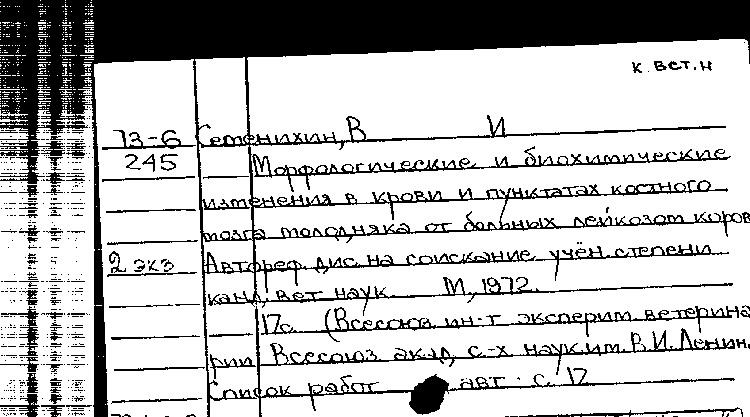 К. ВЕТ. Н
73-6 Семенихин, В И
245 Морфологические и биохимические
изменения в крови и пунктатах костного
мозга молодняка от больных лейкозом коров
2 экз Автореф. дис. на соискание учён. степени
канд. вет. наук. М., 1972.
17с. (Всесоюз. ин-т эксперим. ветерина
рии Всесоюз. акад. с-х наук им. В. И. Ленин.
Список работ авт. с. 17